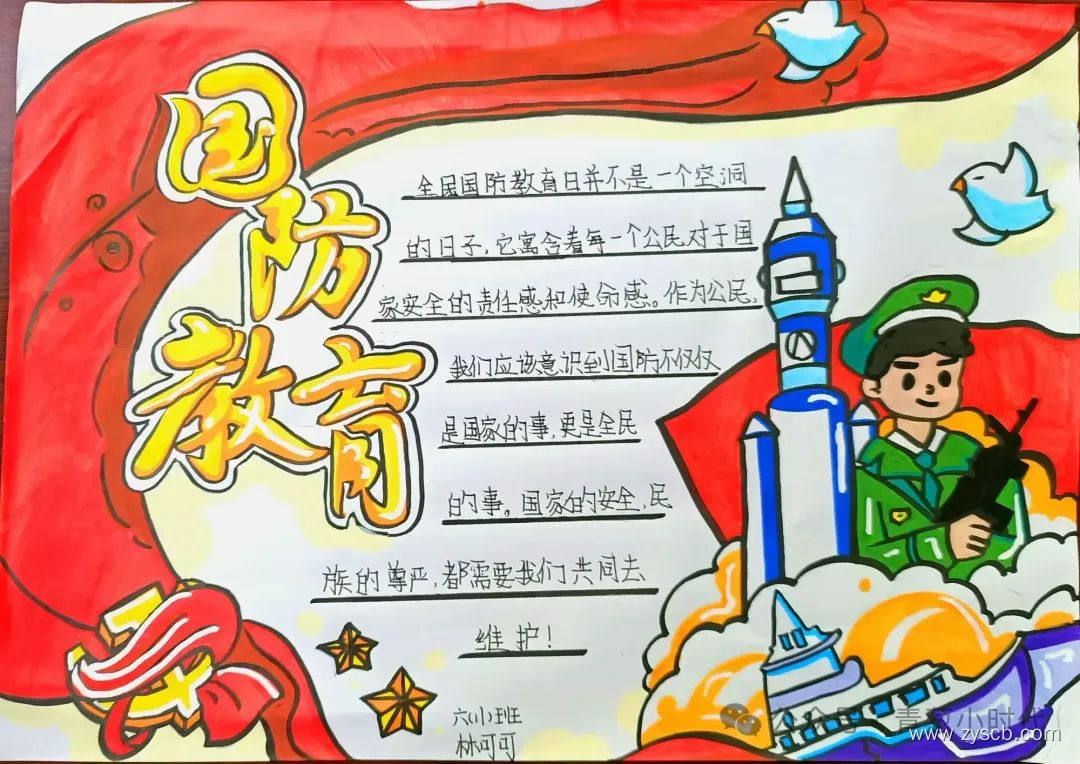 国防教育
全民国防教育日并不是一个空洞
的日子,它寓含着每一个公民对于国
家安全的责任感和使命感。作为公民,
我们应该意识到国防不仅仅
是国家的事,更是全民
的事。国家的安全,民
族的尊严,都需要我们共同去
维护!
六(1)班
林可可
公众号·美育小时代
www.zyscb.com